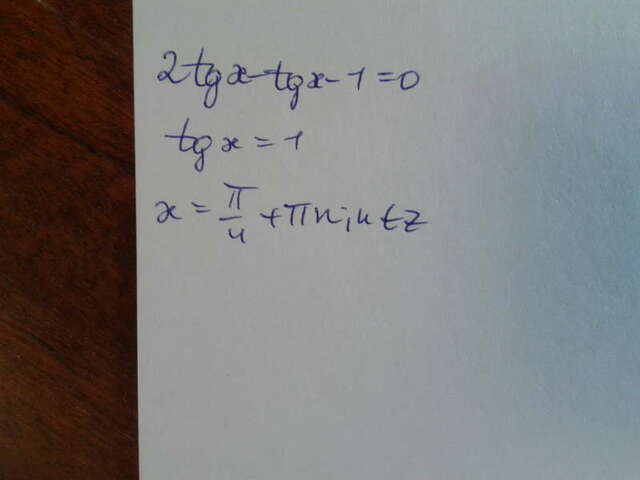 2tgx-tgx-1=0
tgx=1
x=π/4+πn; n∈z